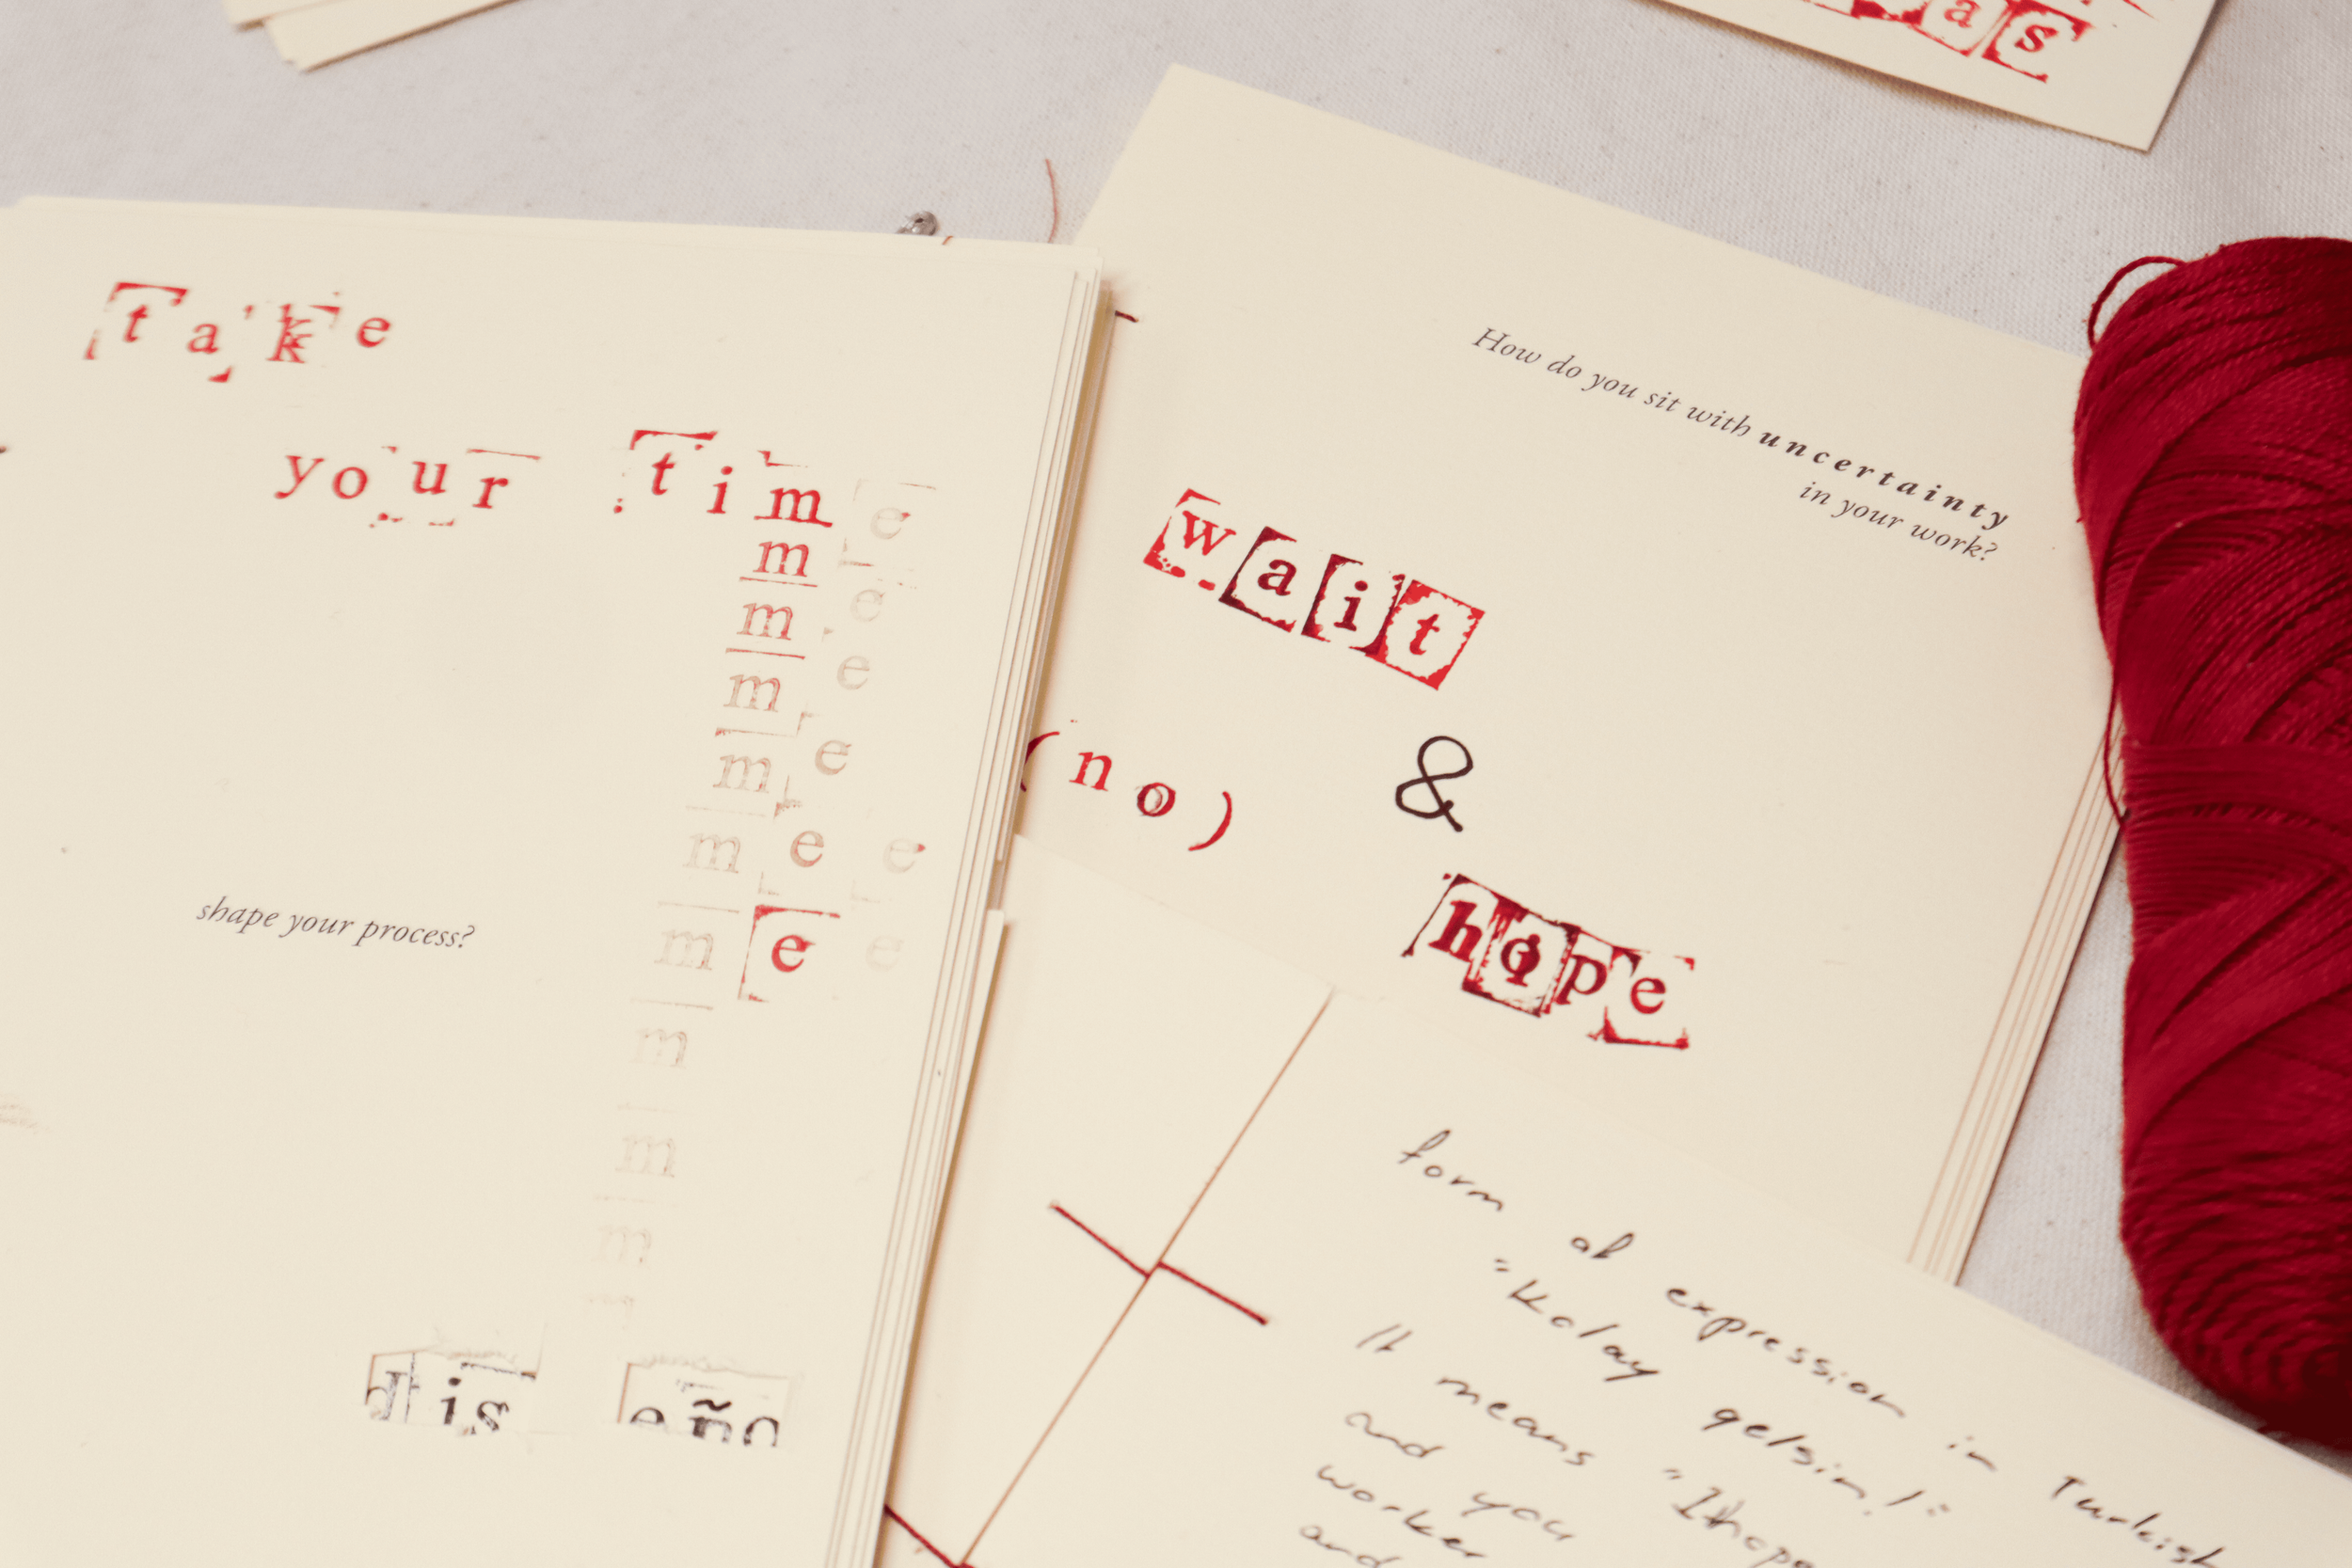 as
take
your time
m e
m e
m e
m e
m e e
m e e
m
m
m
shape your process?
dis eño
How do you sit with uncertainty
in your work?
wait
(no) &
hope
form of expression in Turkish
"Kolay gelsin!"
It means "I hope
and you
worker
and